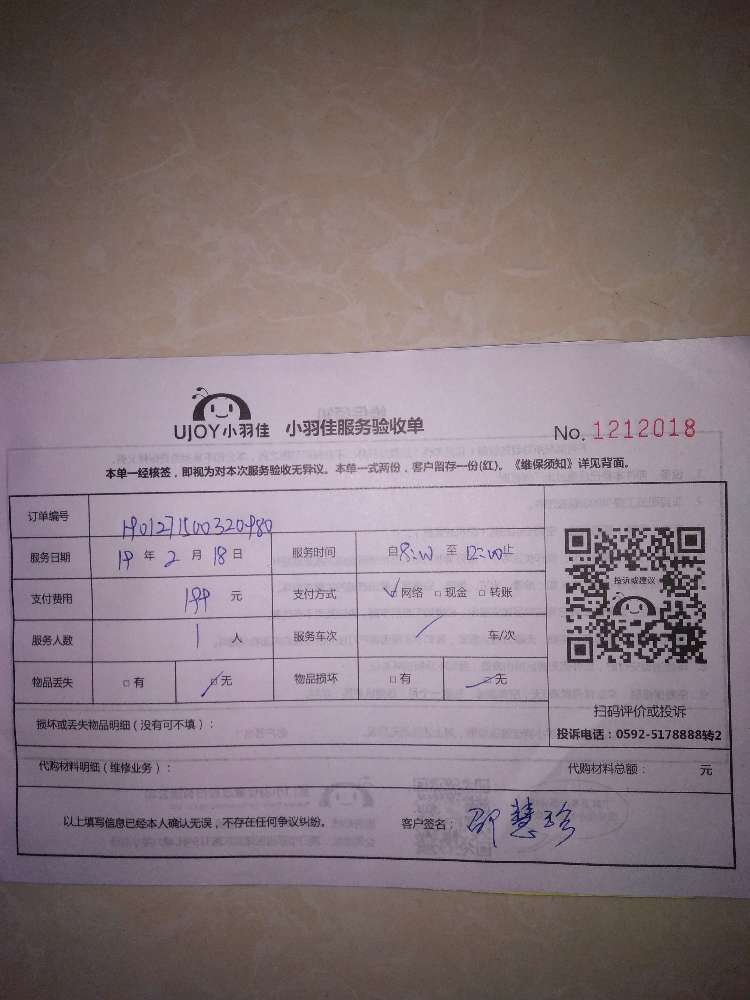 UJOY小羽佳 小羽佳服务验收单 No. 1212018
本单一经核签，即视为对本次服务验收无异议。本单一式两份，客户留存一份(红)。《维保须知》详见背面。
订单编号 1901271500320980
服务日期 19 年 2 月 18 日 服务时间 自8:00 至 12:00止
支付费用 199 元 支付方式 网络 现金 转账
服务人数 1 人 服务车次 / 车/次
物品丢失 有 无 物品损坏 有 无
投诉或建议
扫码评价或投诉
投诉电话：0592-5178888转2
损坏或丢失物品明细（没有可不填）：
代购材料明细（维修业务）： 代购材料总额： 元
以上填写信息已经本人确认无误，不存在任何争议纠纷。 客户签名： 邵慧珍